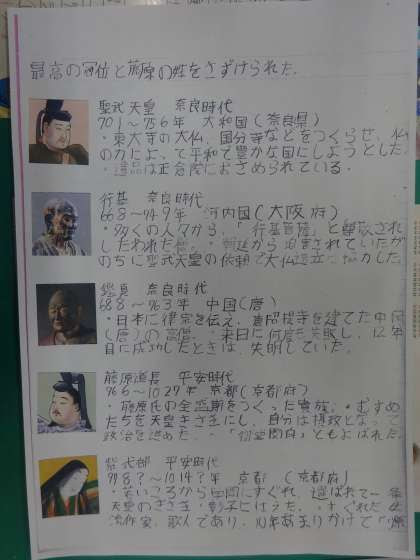 最高の冠位と藤原の姓をさずけられた.
聖武天皇 奈良時代
701～756年 大和国(奈良県)
・東大寺の大仏、国分寺などをつくらせ、仏
の力によって平和で豊かな国にしようとした.
・遺品は正倉院におさめられている.
行基 奈良時代
668～749年 河内国(大阪府)
・多くの人々から、「行基菩薩」と
したわれた僧。・朝廷から迫害されていたが
のちに聖武天皇の依頼で大仏造立に協力した.
鑑真 奈良時代
688～763年 中国(唐)
・日本に律宗を伝え、唐招提寺を建てた中国
(唐)の高僧。・来日に何度も失敗し、12年
目に成功したときは、失明していた.
藤原道長 平安時代
966～1027年 京都(京都府)
・藤原氏の全盛期をつくった貴族。・むすめ
たちを天皇きさきにし、自分は摂政となって
政治を進めた. 「御堂関白」ともよばれた.
紫式部 平安時代
978?～1014?年 京都 (京都府)
いころから にすぐれ、選ばれて一条
天皇のきさき・彰子につかえた. すぐれた女
流作家、歌人であり、10年あまりかけて「源